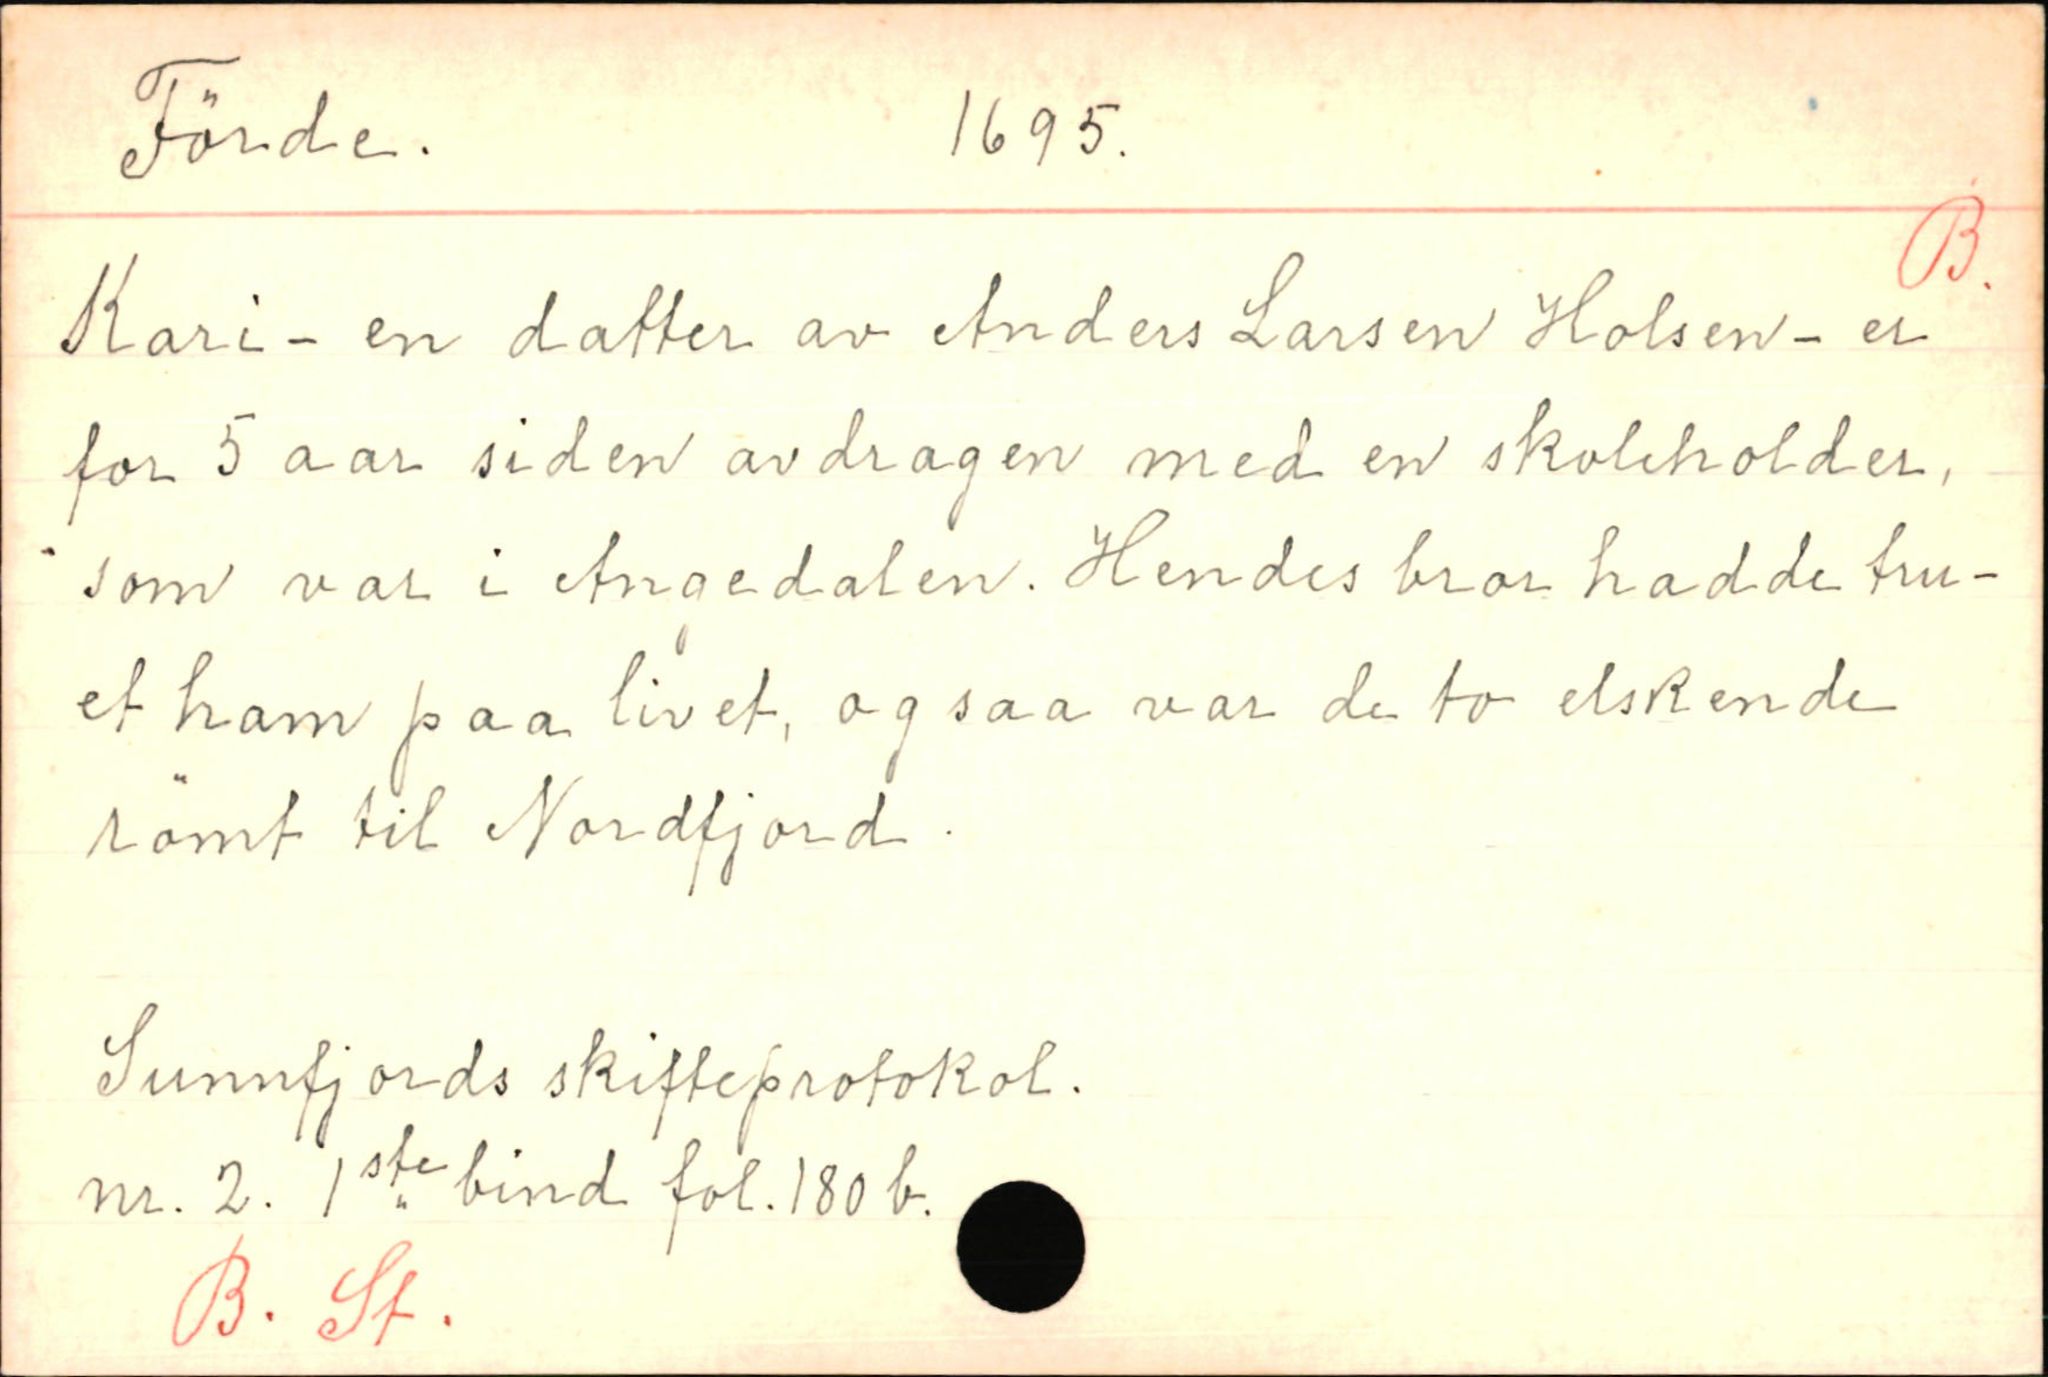 Förde. 1695.
B.
Kari - en datter av Anders Larsen Holsen - er
for 5 aar siden avdragen med en skoleholder,
som var i Angedalen. Hendes bror hadde tru-
et ham paa livet, og saa var de to elskende
römt til Nordfjord.
Sunnfjords skifteprotokol.
nr. 2. 1ste bind fol. 180 b.
B. St.